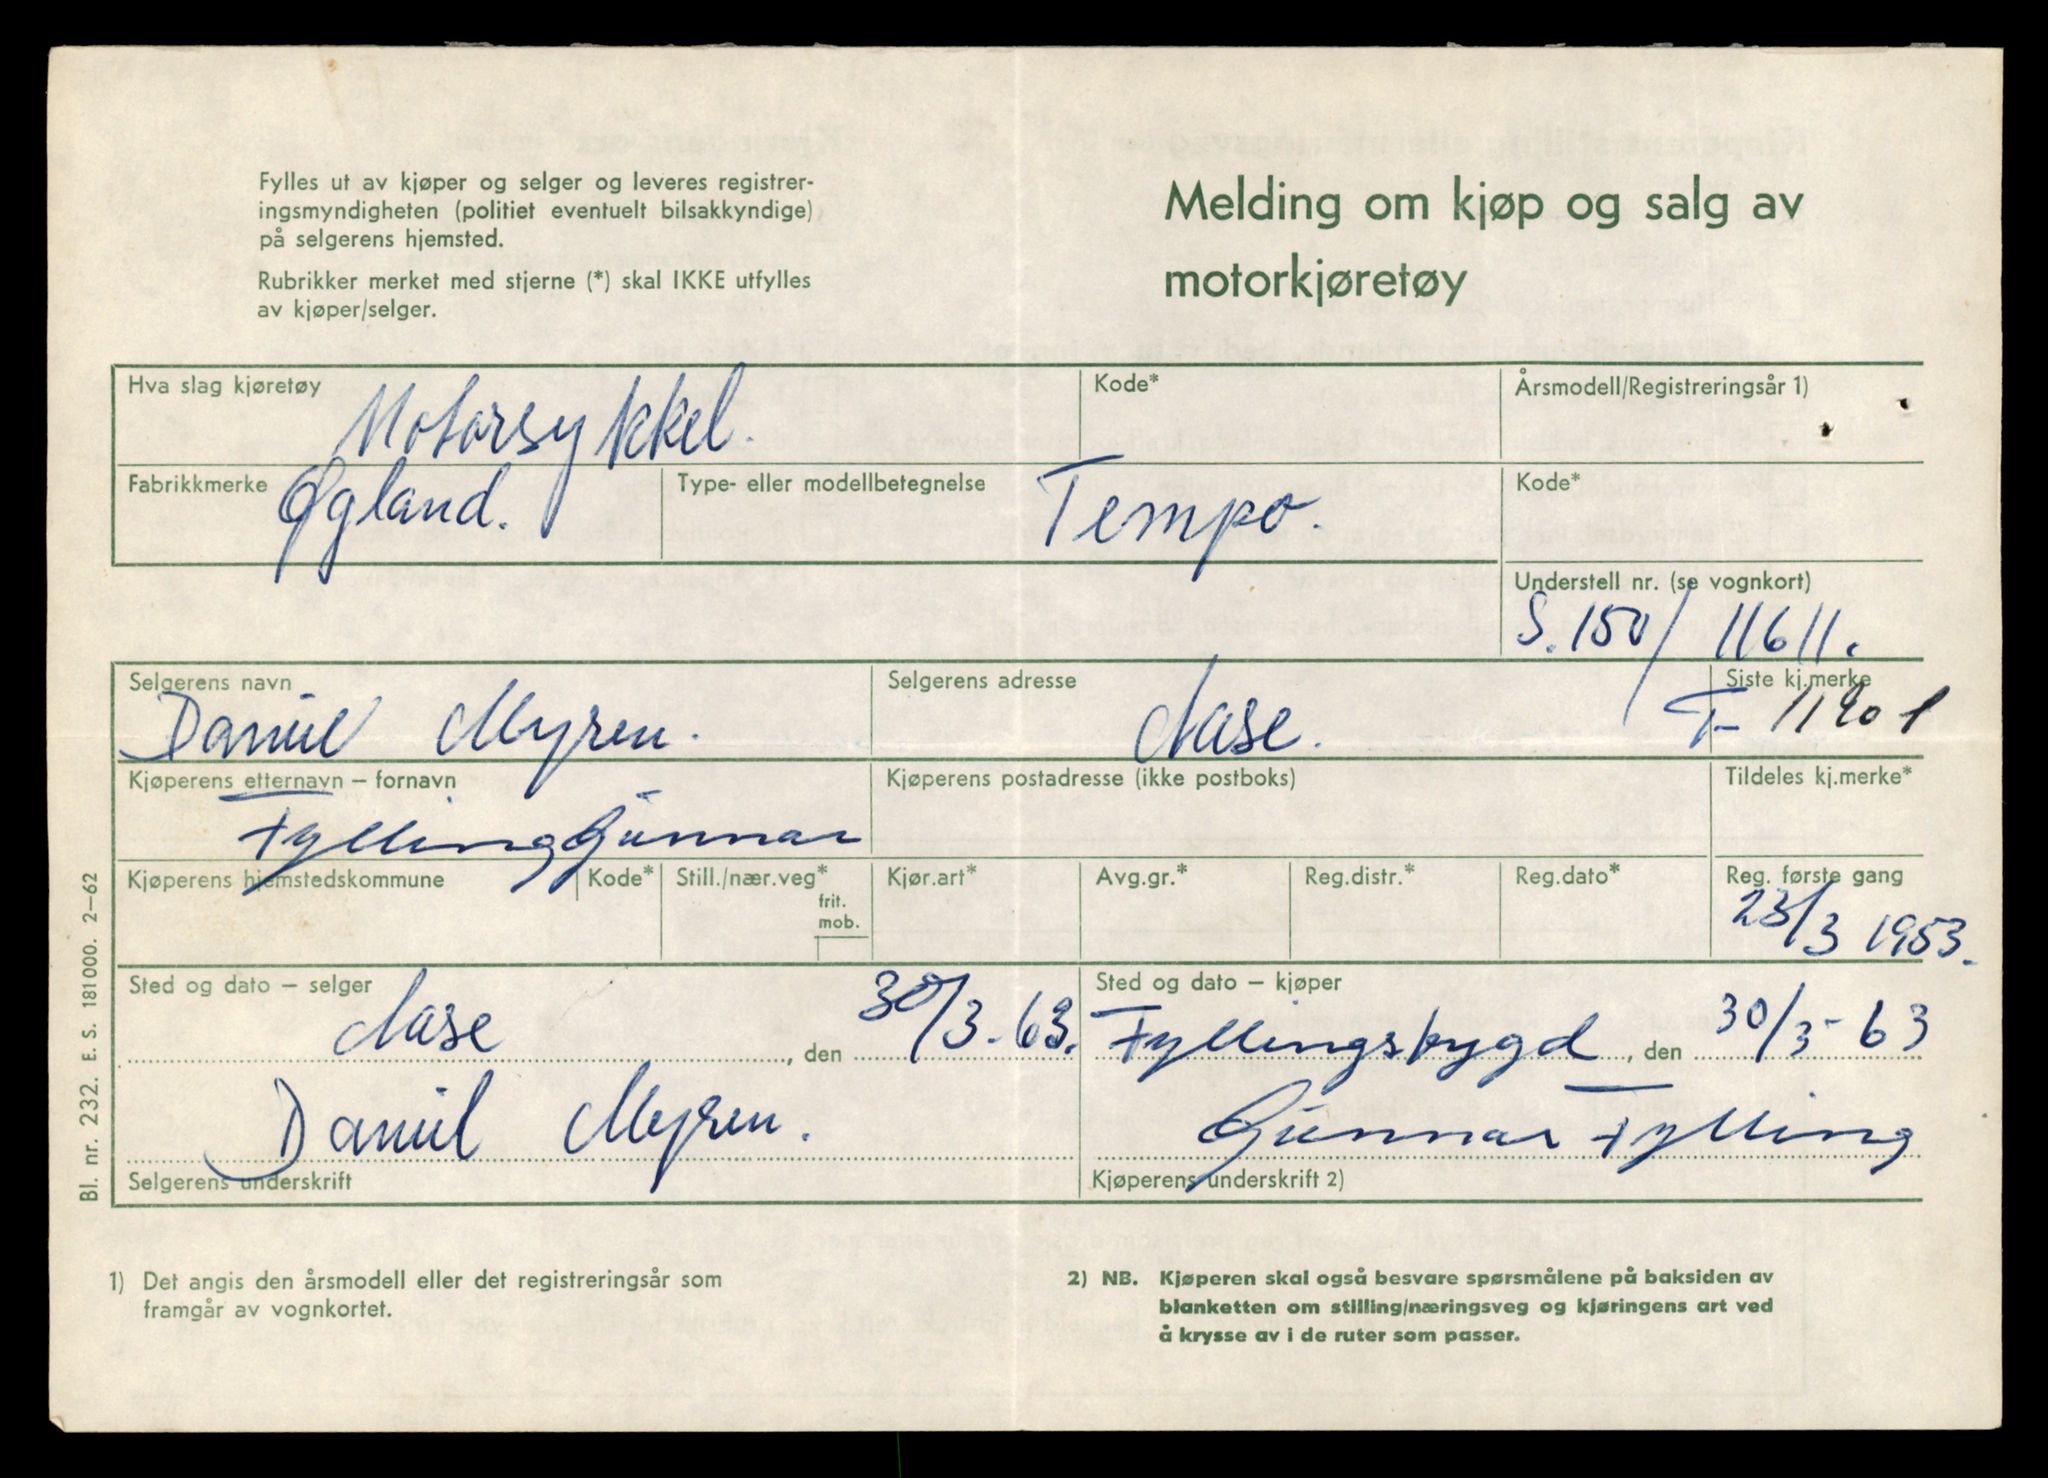 Fylles ut av kjøper og selger og leveres registrer-
ingsmyndigheten (politiet eventuelt bilsakkyndige)
på selgerens hjemsted.
Rubrikker merket med stjerne (*) skal IKKE utfylles
av kjøper/selger.
Melding om kjøp og salg av
motorkjøretøy
Hva slag kjøretøy
Motorsykkel.
Kode*
Årsmodell/Registreringsår 1)
Fabrikkmerke
Øgland.
Type- eller modellbetegnelse
Tempo.
Kode*
Understell nr. (se vognkort)
S. 150/11611.
Selgerens navn
Daniel Myren.
Selgerens adresse
Aase.
Siste kj.merke
T- 11901
Kjøperens etternavn – fornavn
Fylling Gunnar
Kjøperens postadresse (ikke postboks)
Tildeles kj.merke*
Kjøperens hjemstedskommune
Kode*
Still./nær.veg*
frit.
mob.
Kjør.art*
Avg.gr.*
Reg.distr.*
Reg.dato*
Reg. første gang
23/3 1953.
Sted og dato – selger
Aase, den 30/3-63.
Daniel Myren.
Selgerens underskrift
Sted og dato – kjøper
Fyllingsbygd, den 30/3-63
Gunnar Fylling
Kjøperens underskrift 2)
1) Det angis den årsmodell eller det registreringsår som
framgår av vognkortet.
2) NB. Kjøperen skal også besvare spørsmålene på baksiden av
blanketten om stilling/næringsveg og kjøringens art ved
å krysse av i de ruter som passer.
Bl. nr. 232. E. S. 181000. 2-62